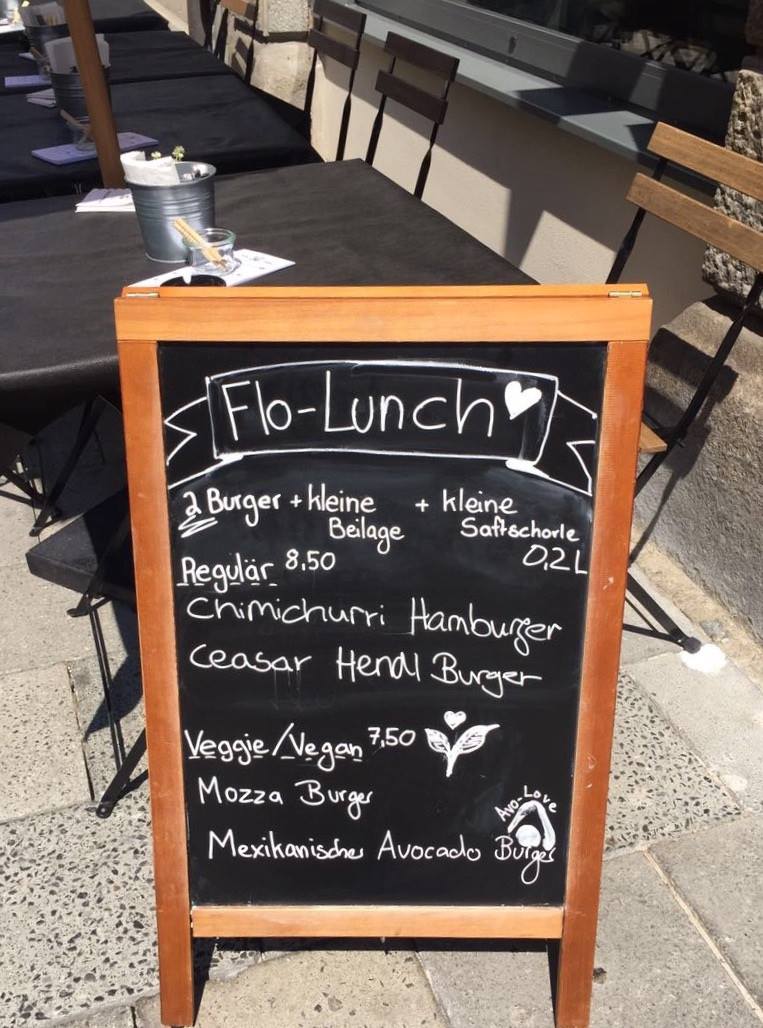 Flo-Lunch
2 Burger + kleine Beilage + kleine Saftschorle 0,2L
Regulär 8,50
Chimichurri Hamburger
Ceasar Hendl Burger
Veggie/Vegan 7,50
Mozza Burger
Avo-Love
Mexikanischer Avocado Burger